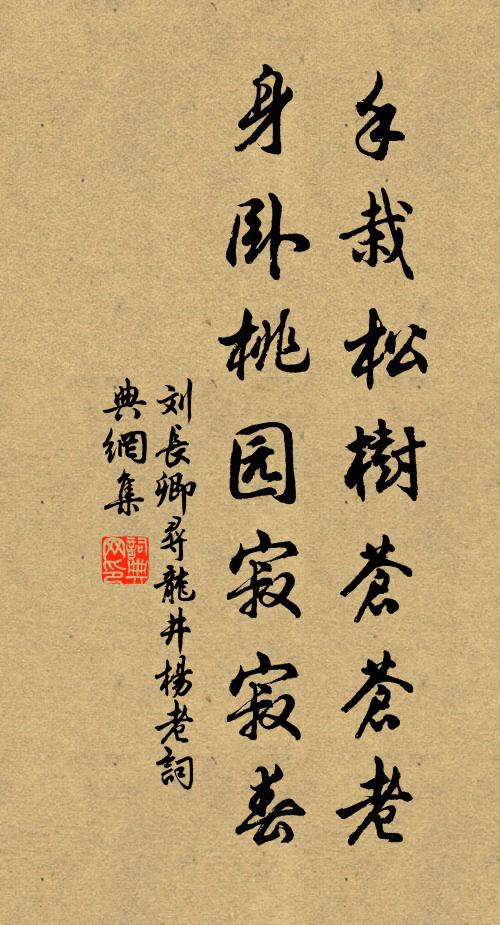 手栽松樹蒼蒼老
身卧桃园寂寂春
刘長卿尋龍井楊老詞
典網集
詞典
网印